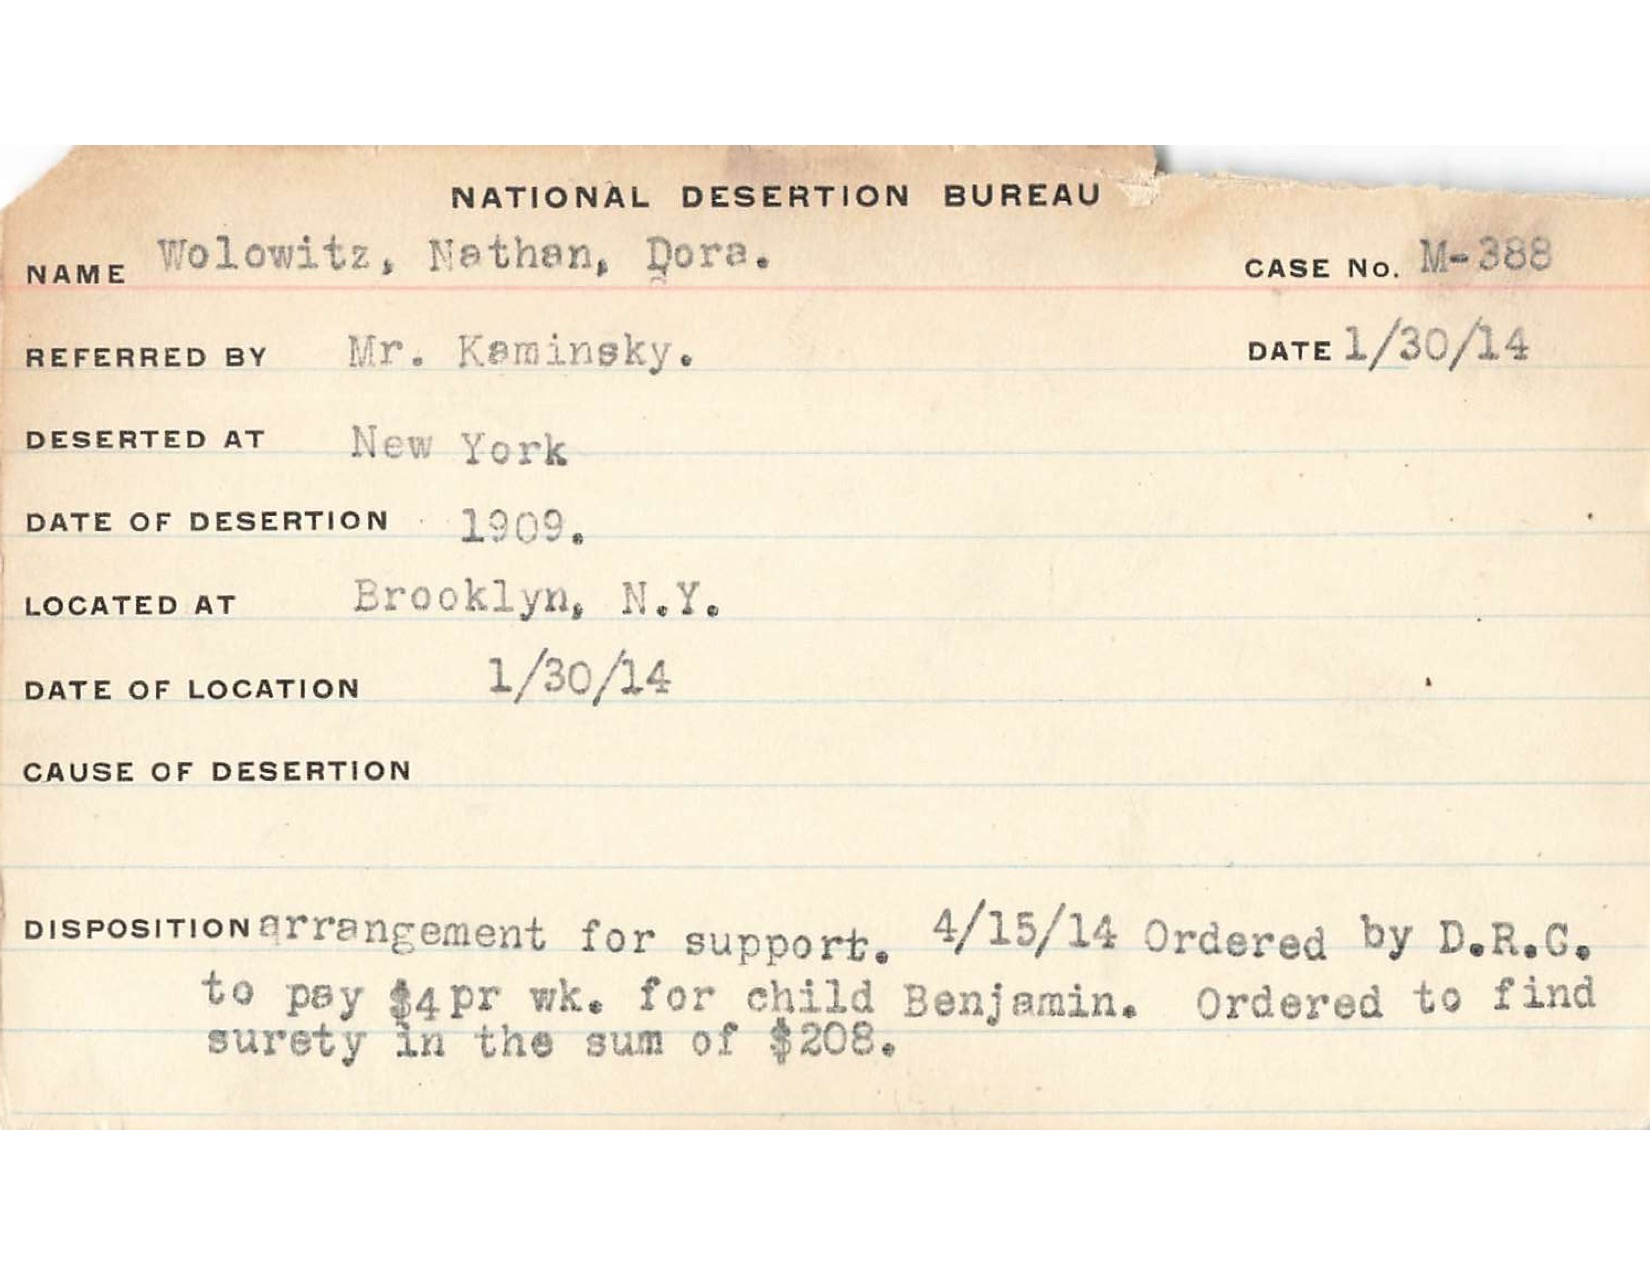 NATIONAL DESERTION BUREAU
NAME Wolowitz, Nathan, Dora. CASE No. M-388
REFERRED BY Mr. Kaminsky. DATE 1/30/14
DESERTED AT New York
DATE OF DESERTION 1909.
LOCATED AT Brooklyn, N.Y.
DATE OF LOCATION 1/30/14
CAUSE OF DESERTION
DISPOSITION arrangement for support. 4/15/14 Ordered by D.R.C.
to pay $4 pr wk. for child Benjamin. Ordered to find
surety in the sum of $208.